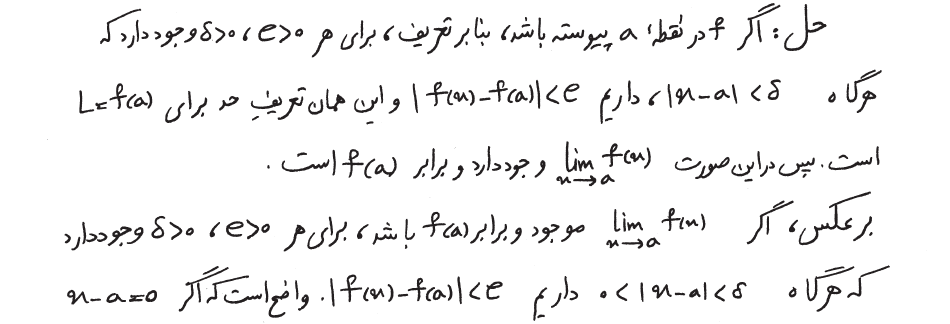 حل: اگر f در نقطهٔ a پیوسته باشد، بنا بر تعریف، برای هر e>0، δ>0 وجود دارد که
هرگاه |x-a|<δ، داریم |f(x)-f(a)|<e و این همان تعریفِ حد برای L=f(a)
است. پس در این صورت lim f(x) x→a وجود دارد و برابر f(a) است.
برعکس، اگر lim f(x) x→a موجود و برابر f(a) باشد، برای هر e>0، δ>0 وجود دارد
که هرگاه 0<|x-a|<δ داریم |f(x)-f(a)|<e. واضح است که اگر x-a=0